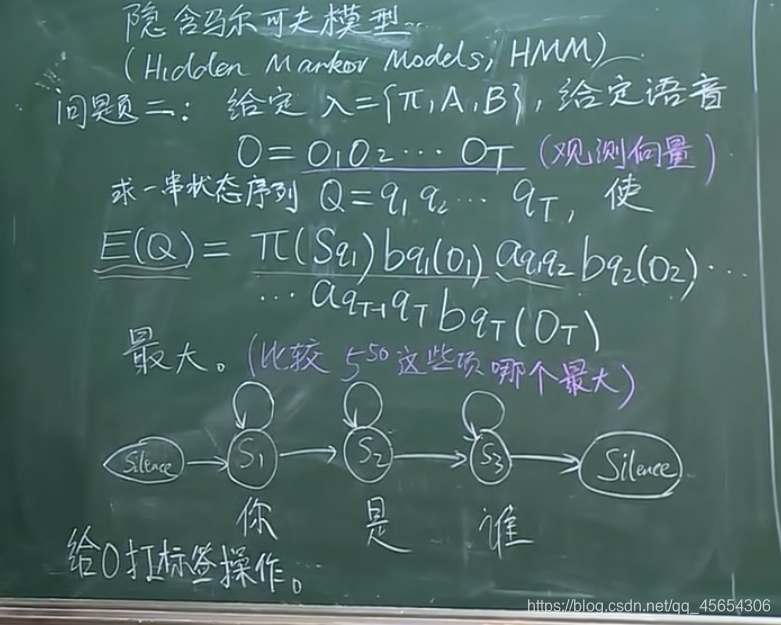 隐含马尔可夫模型
(Hidden Markov Models, HMM)
问题二: 给定 λ={π,A,B}, 给定语音
O=O₁O₂⋯O_T (观测向量)
求一串状态序列 Q=q₁q₂⋯q_T, 使
E(Q)=π(S_q₁)b_q₁(O₁)a_q₁q₂b_q₂(O₂)⋯
⋯a_q_T-1q_Tb_q_T(O_T)
最大。(比较 5⁵⁰ 这些项哪个最大)
Silence S₁ S₂ S₃ Silence
你 是 谁
给O打标签操作。
https://blog.csdn.net/qq_45654306